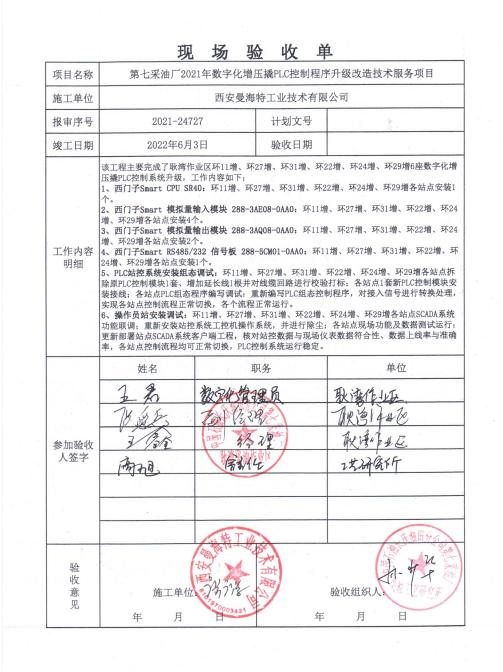 现场验收单
项目名称 第七采油厂2021年数字化增压撬PLC控制程序升级改造技术服务项目
施工单位 西安曼海特工业技术有限公司
报审序号 2021-24727 计划文号
竣工日期 2022年6月3日 验收日期
工作内容明细
该工程主要完成了耿湾作业区环11增、环27增、环31增、环22增、环24增、环29增6座数字化增
压撬PLC控制系统升级，工作内容如下：
1、西门子Smart CPU SR40：环11增、环27增、环31增、环22增、环24增、环29增各站点安装1
个。
2、西门子Smart 模拟量输入模块 288-3AE08-0AA0：环11增、环27增、环31增、环22增、环24
增、环29增各站点安装4个。
3、西门子Smart 模拟量输出模块 288-3AQ08-0AA0：环11增、环27增、环31增、环22增、环24
增、环29增各站点安装2个。
4、西门子Smart RS485/232 信号板 288-5CM01-0AA0：环11增、环27增、环31增、环22增、环
24增、环29增各站点安装1个。
5、PLC站控系统安装组态调试：环11增、环27增、环31增、环22增、环24增、环29增各站点拆
除原PLC控制模块1套、增加延长线1根并对线缆回路进行校验打标；各站点1套新PLC控制模块安
装接线；各站点PLC组态程序编写调试；重新编写PLC组态控制程序，对接入信号进行转换处理，
实现各站点控制流程正常切换，各个流程正常运行。
6、操作员站安装调试：环11增、环27增、环31增、环22增、环24增、环29增各站点SCADA系统
功能联调；重新安装站控系统工控机操作系统，并进行除尘；各站点现场功能及数据测试运行；
更新部署站点SCADA系统客户端工程，核对站控数据与现场仪表数据符合性、数据上线率与准确
率，各站点控制流程均可正常切换，PLC控制系统运行稳定。
参加验收人签字
姓名 职务 单位
王君 数字化管理员 耿湾作业区
副经理 耿湾作业区
王 经理 耿湾作业区
工艺研究所
验收意见
西安曼海特工业技术有限公司
6101970003421
施工单位： 验收组织人：
年 月 日 年 月 日